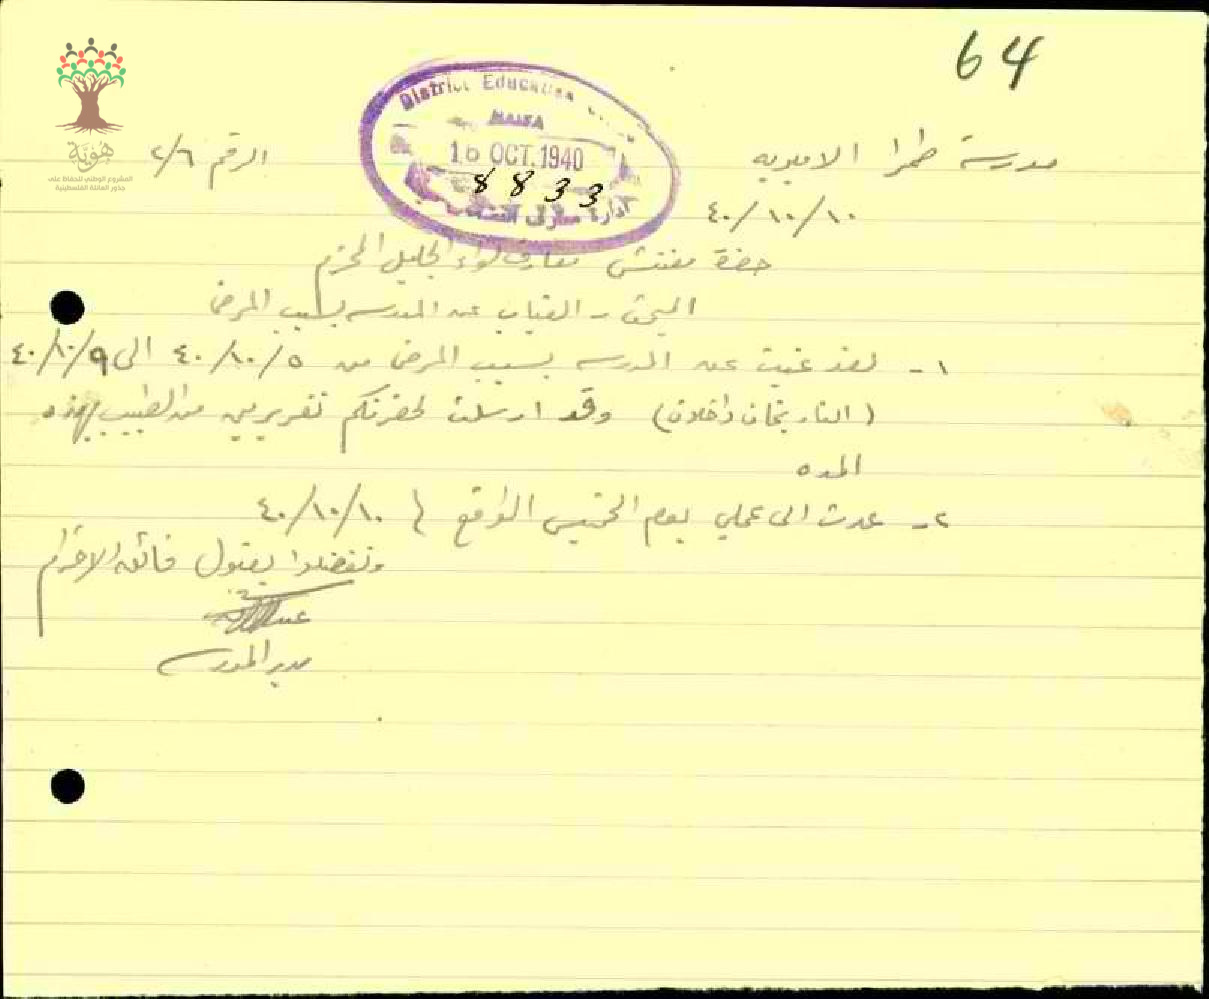 64
هوية
المشروع الوطني للحفاظ على
جذور العائلة الفلسطينية
District Education
HAIFA
16 OCT. 1940
8833
ادارة معارف
مدرسة طمرا الاميريه
الرقم ٢/٦
٤٠/١٠/١٠
حضرة مفتش معارف لواء الجليل المحترم
المبحث - الغياب عن المدرسه بسبب المرض
١- لقد غبت عن المدرسه بسبب المرض من ٤٠/١٠/٥ الى ٤٠/١٠/٩
(التاريخان داخلان) وقد ارسلت لحضرتكم تقريرين من الطبيب بهذه
المده
٢- عدت الى عملي يوم الخميس الواقع في ٤٠/١٠/١٠
وتفضلوا بقبول فائق الاحترام
مدير المدرسه